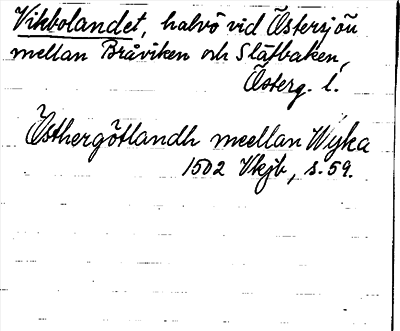 Vikbolandet, halvö vid Östersjön
mellan Bråviken och Slätbaken,
Österg. l.
Östhergötlandh meellan Wijka
1502 Vkjb, s. 59.